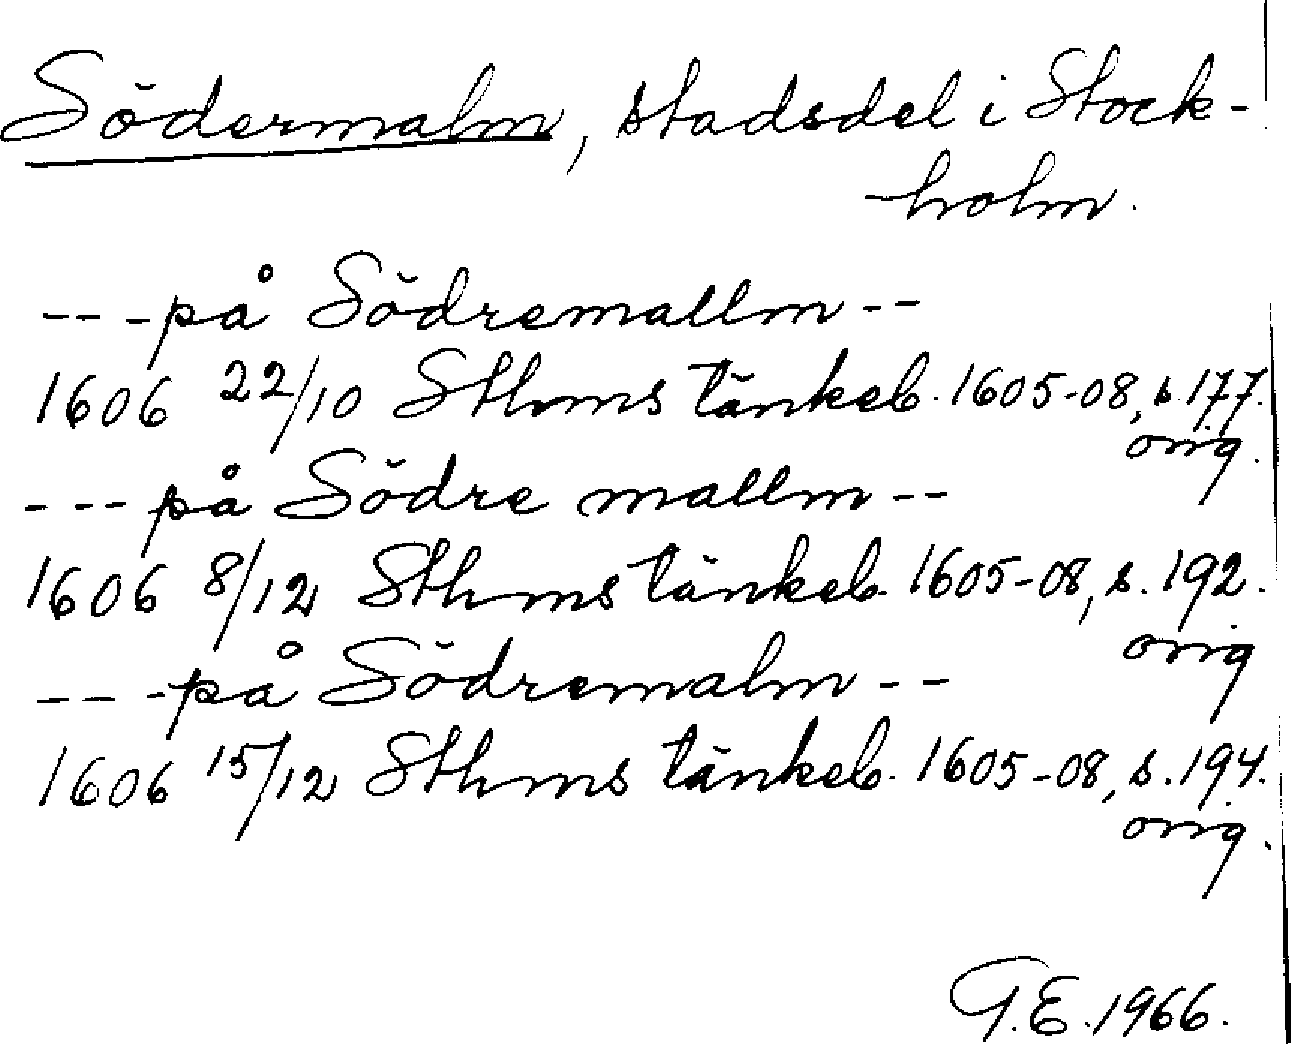 Södermalm, stadsdel i Stock-
holm.
--- på Södremallm --
1606 22/10 Sthms tänkeb. 1605-08, s. 177.
orig.
--- på Södre mallm --
1606 8/12 Sthms tänkeb. 1605-08, s. 192.
orig
--- på Södremalm --
1606 15/12 Sthms tänkeb. 1605-08, s. 194.
orig.
G.E. 1966.